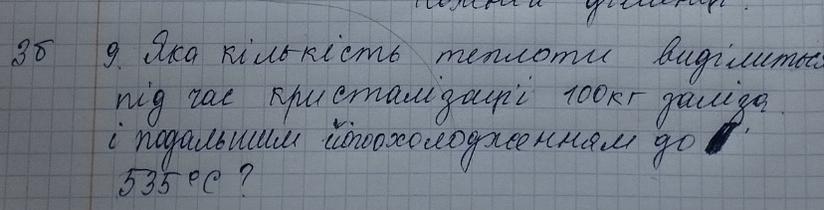 3б 9. Яка кількість теплоти виділиться
під час кристалізації 100кг заліза
і подальшим його охолодженням до
535°C?